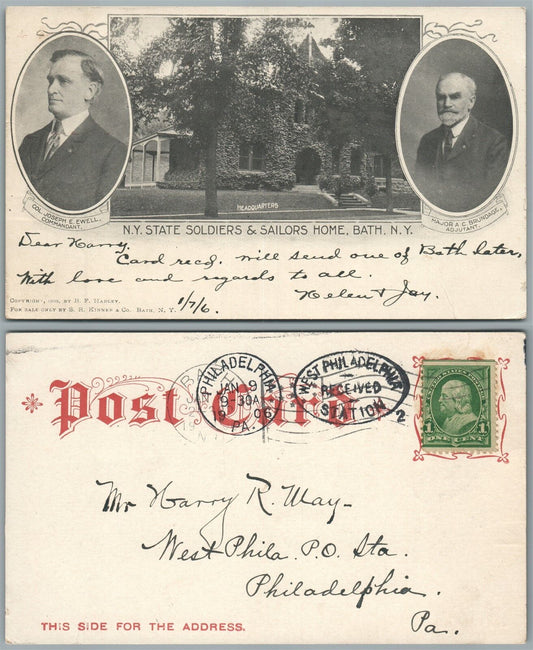 COL. JOSEPH E. EWELL,
COMMANDANT.
HEADQUARTERS
MAJOR A.C. BRUNDAGE,
ADJUTANT.
N.Y. STATE SOLDIERS & SAILORS HOME, BATH, N.Y.
Dear Harry.
Card recd. will send one of Bath later,
With love and regards to all.
Helen & Jay.
1/7/6.
COPYRIGHT, 1905, BY B. F. HADLEY.
FOR SALE ONLY BY S. R. KINNEY & CO. BATH, N. Y.
Post Card
PHILADELPHIA
JAN 9
9-30A
1906
PA.
WEST PHILADELPHIA
RECEIVED
STATION
2
1 1
ONE CENT
Mr Harry R. May-
West Phila. P.O. Sta.
Philadelphia.
Pa.
THIS SIDE FOR THE ADDRESS.